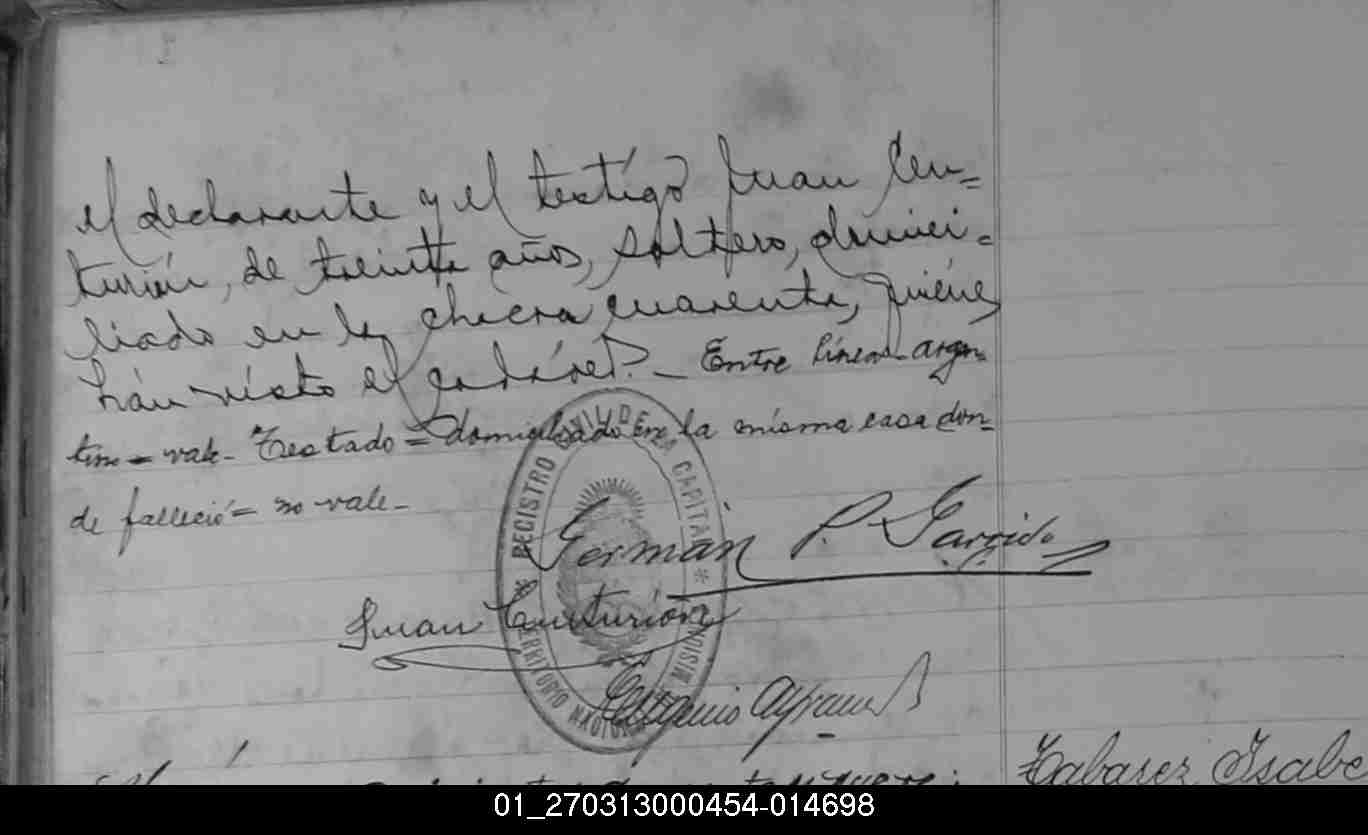 el declarante y el testígo Juan Cen=
turión, de treinta años, soltero, domici-
liado en la chacra cuarenta, quiénes
hán vísto el cadáver.- Entre líneas-argen-
tino - vale - Testado = domiciliado En la mísma casa don-
de falleció = no vale -
REGISTRO CIVIL DE LA CAPITAL * MISIONES TERRITORIO NACIONAL *
German P. Garrido
Juan Centurión
Eugenio
Tabarez Isabe
01_270313000454-014698